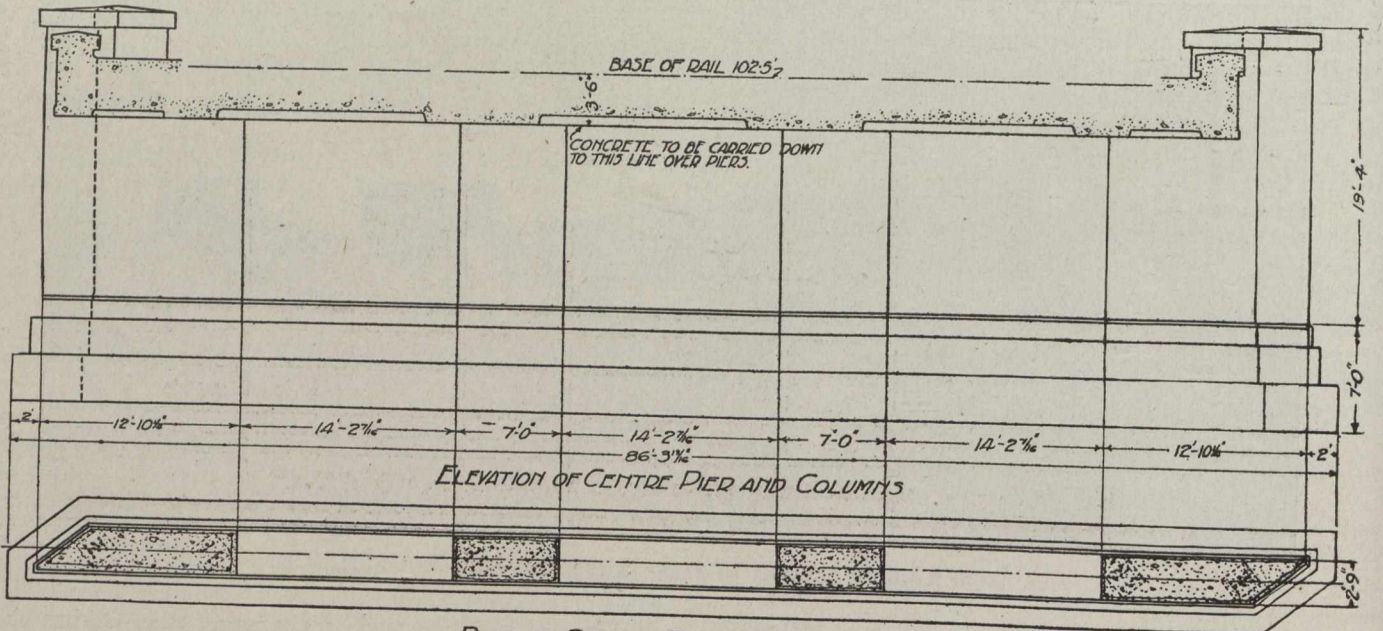 BASE OF RAIL 102.5'
3'-6"
CONCRETE TO BE CARRIED DOWN
TO THIS LINE OVER PIERS.
19'-4"
7'-0"
2' 12'-10⅛" 14'-2 7/16" 7'-0" 14'-2 7/16" 7'-0" 14'-2 7/16" 12'-10⅛" 2'
ELEVATION OF CENTRE PIER AND COLUMNS
2'-9"